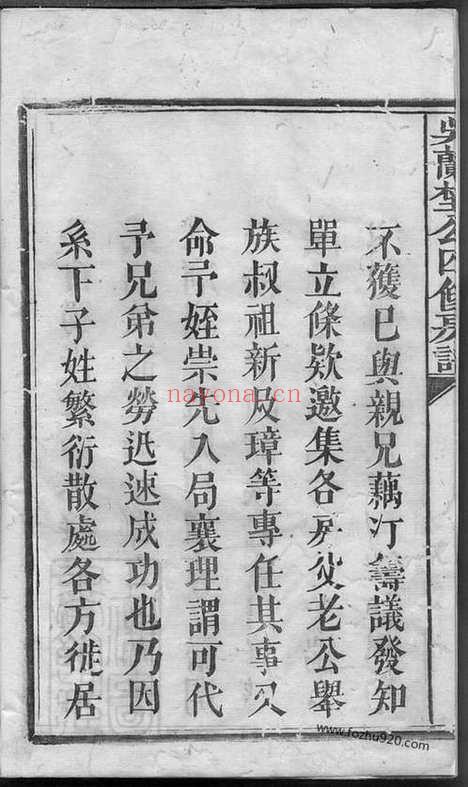 不獲已與親兄藕汀籌議發知
單立條欵邀集各房父老公舉
族叔祖新及璋等專任其事又
命予姪崇光入局襄理謂可代
予兄弟之勞迅速成功也乃因
系下子姓繁衍散處各方徙居
nayona.cn
www.fozhu920.com